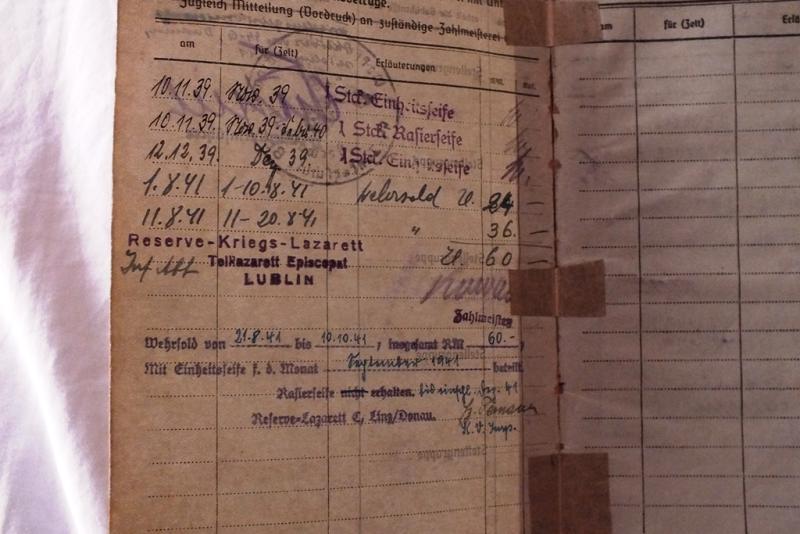 Zugleich Mitteilung (Vordruck) an zuständige Zahlmeisterei
am für (Zeit) Erläuterungen
10.11.39. Nov. 39 1 Stck. Einheitsseife
10.11.39. Nov. 39 1 Stck. Rasierseife
12.12.39. Dez. 39. 1 Stck. Einheitsseife
1.8.41 1-10.8.41 Wehrsold 24 —
11.8.41 11-20.8.41 " 36. —
Reserve-Kriegs-Lazarett Zl. 60 —
Teillazarett Episcopat
LUBLIN
Zahlmeister
Wehrsold von 21.8.41 bis 10.10.41, insgesamt RM 60.-,
Mit Einheitsseife f. d. Monat September 1941 beteilt.
Rasierseife nicht erhalten. bis einschl. 41
Reserve-Lazarett C, Linz/Donau.
K.V. Insp.
am für (Zeit)